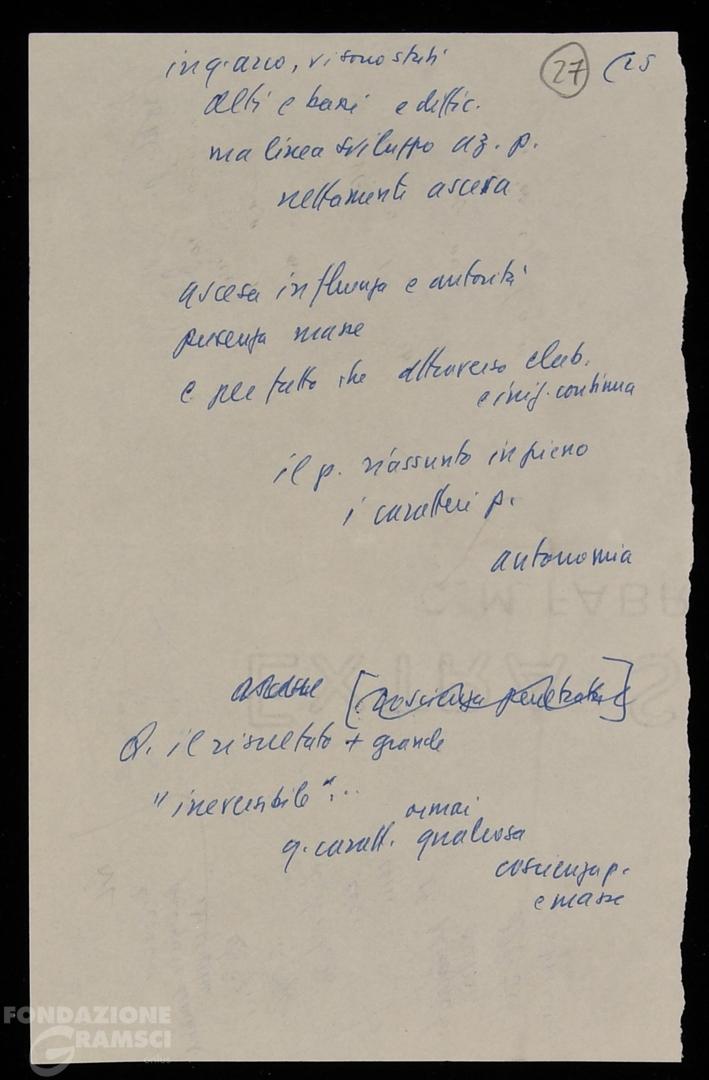 27 (25
in q. arco, vi sono stati
alti e bassi e diffic.
ma linea sviluppo az. p.
nettamente ascesa
ascesa influenza e autorità
presenza masse
e per fatto che attraverso elab.
e iniz. continua
il p. riassunto in pieno
i caratteri p.
autonomia
[coscienza penetrata]
Q. il risultato + grande
"irreversibile"...
ormai
q. caratt. qualcosa
coscienza p.
e masse
C. M. FABR
EXTRA S
FONDAZIONE
GRAMSCI
onlus